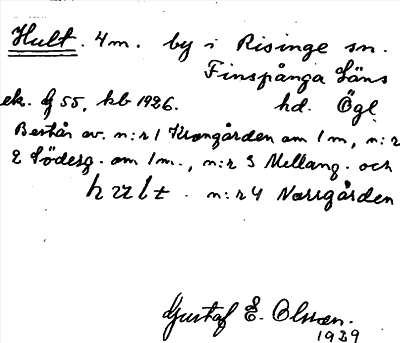 Hult. 4 m. by i Risinge sn.
Finspånga Läns
ek. bl 55, kb 1926. hd. Ögl.
Består av. n:r 1 Krongården om 1 m, n:r
2 Söderg. om 1 m., n:r 3 Mellang. och
hult. n:r 4 Norrgården
Gustaf E. Olsson.
1929